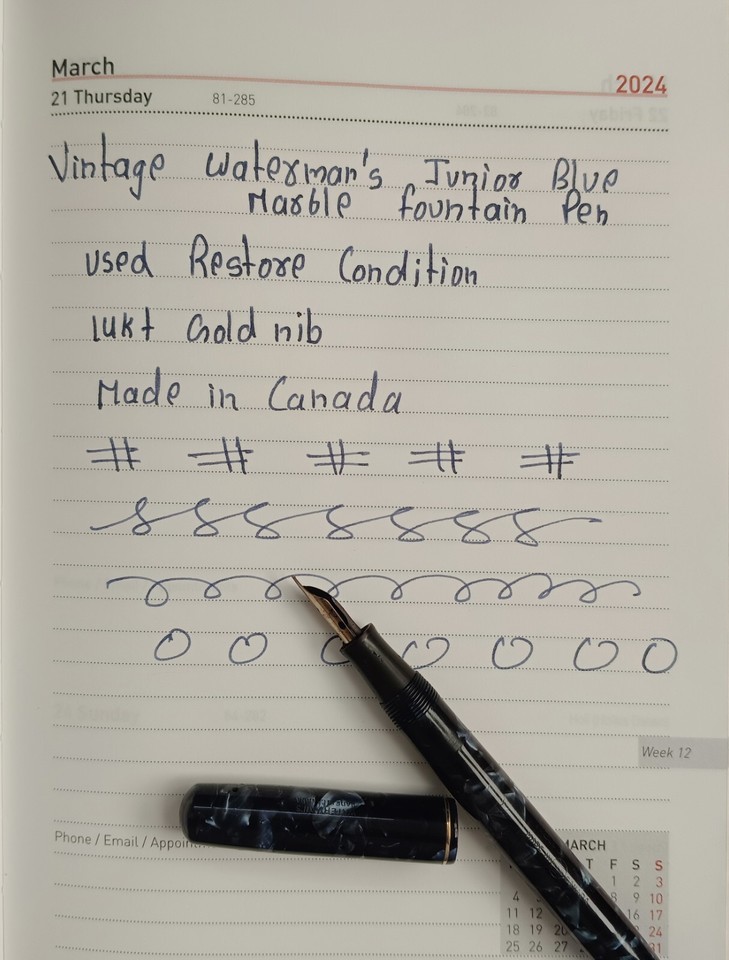 March
2024
21 Thursday 81-285
Vintage Waterman's Junior Blue
Marble fountain Pen
used Restore Condition
14kt Gold nib
Made in Canada
Week 12
Phone / Email /
MARCH
T F S S
1 2 3
4 8 9 10
11 12 16 17
18 19 20 24
25 26 27 31